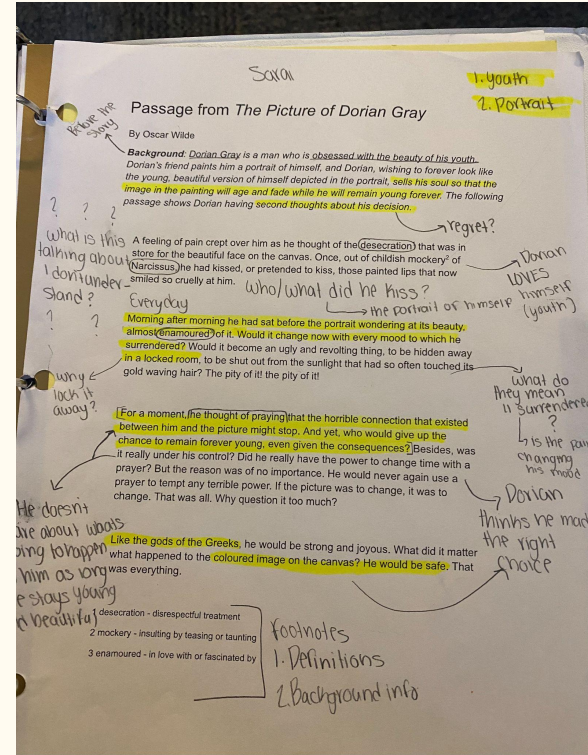 Sarai
1. youth
2. Portrait
Before the
story
Passage from The Picture of Dorian Gray
By Oscar Wilde
Background: Dorian Gray is a man who is obsessed with the beauty of his youth.
Dorian's friend paints him a portrait of himself, and Dorian, wishing to forever look like
the young, beautiful version of himself depicted in the portrait, sells his soul so that the
image in the painting will age and fade while he will remain young forever. The following
passage shows Dorian having second thoughts about his decision.
regret?
? ? ?
what is this
talking about
I don't under-
stand?
? ?
A feeling of pain crept over him as he thought of the desecration that was in
store for the beautiful face on the canvas. Once, out of childish mockery² of
Narcissus, he had kissed, or pretended to kiss, those painted lips that now
smiled so cruelly at him.
who/what did he kiss?
the portrait of himself
Dorian
LOVES
himself
(youth)
Everyday
Morning after morning he had sat before the portrait wondering at its beauty,
almost enamoured of it. Would it change now with every mood to which he
surrendered? Would it become an ugly and revolting thing, to be hidden away
in a locked room, to be shut out from the sunlight that had so often touched its
gold waving hair? The pity of it! the pity of it!
why
lock it
away?
what do
they mean
"surrendere
?
Is the pain
changing
his mood
For a moment, he thought of praying that the horrible connection that existed
between him and the picture might stop. And yet, who would give up the
chance to remain forever young, even given the consequences? Besides, was
it really under his control? Did he really have the power to change time with a
prayer? But the reason was of no importance. He would never again use a
prayer to tempt any terrible power. If the picture was to change, it was to
change. That was all. Why question it too much?
He doesn't
are about whats
oing to happen
him as long
e stays young
d beautiful
Dorian
thinks he mad
the right
choice
Like the gods of the Greeks, he would be strong and joyous. What did it matter
what happened to the coloured image on the canvas? He would be safe. That
was everything.
1 desecration - disrespectful treatment
2 mockery - insulting by teasing or taunting
3 enamoured - in love with or fascinated by
footnotes
1. Definitions
2. Background info